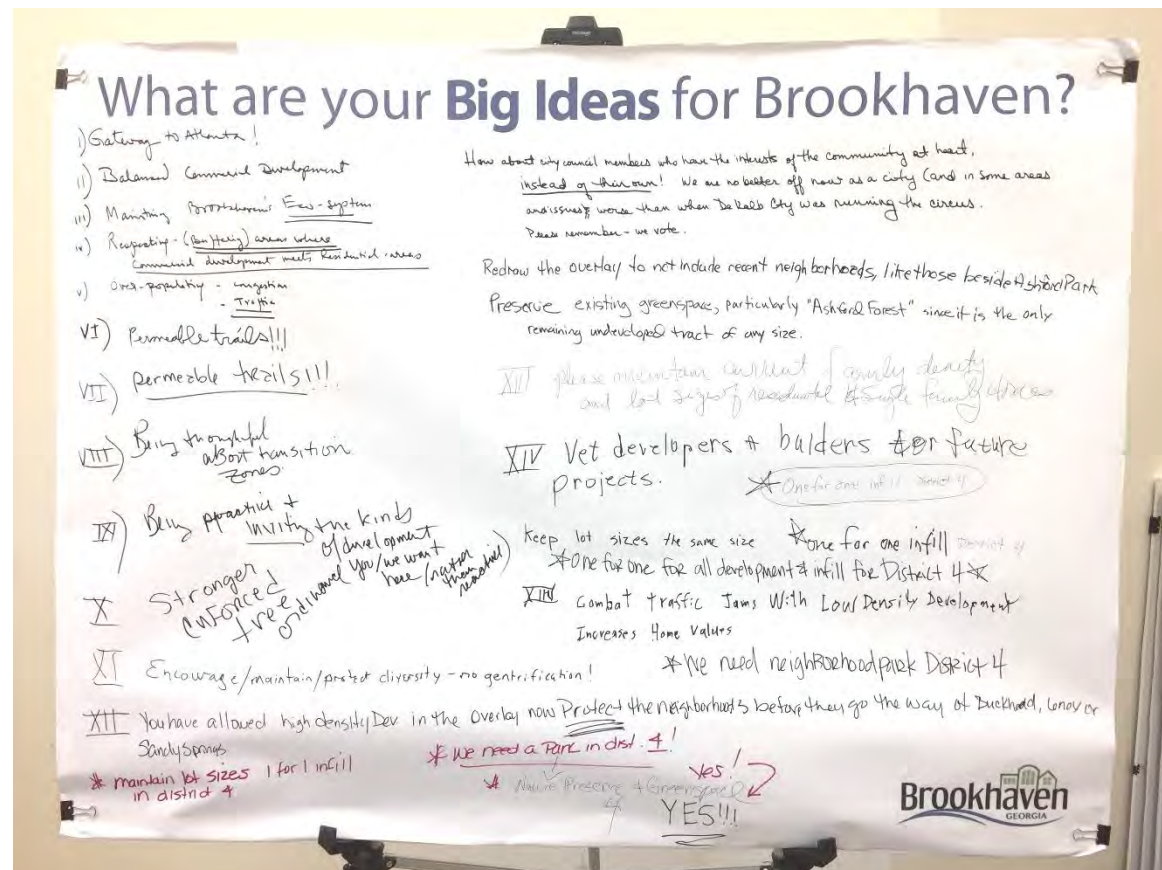 What are your Big Ideas for Brookhaven?
I) Gateway to Atlanta!
II) Balanced Commercial Development
III) Maintaing Brookhaven's Eco-system
IV) Respecting - (Buffering) areas where
Commercial development meets Residential areas
V) Over-populating - Congestion
- Traffic
VI) Permeable trails!!!
VII) permeable trails!!!
VIII) Being thoughtful
about transition
zones.
IX) Being proactive +
inviting the kinds
of development
you/we want
here (rather
than
reactive)
X Stronger
enforced
tree
ordinance
XI Encourage/maintain/protect diversity - no gentrification!
XII You have allowed high density Dev. in the Overlay now Protect the neighborhoods before they go the way of Buckhead, Lenox or
Sandy Springs
* maintain lot sizes 1 for 1 infill
in district 4
How about city council members who have the interests of the community at heart,
instead of their own! We are no better off now as a city (and in some areas
and issues worse than when DeKalb Cty was running the circus.
Please remember - we vote.
Redraw the overlay to not include recent neighborhoods, like those beside Ashford Park
Preserve existing greenspace, particularly "Ashford Forest" since it is the only
remaining undeveloped tract of any size.
XII please maintain current family density
and lot sizes of residential single family
XIV Vet developers + bulders for future
projects.
* One for one infill District 4
Keep lot sizes the same size * one for one infill District 4
* One for one for all development & infill for District 4 *
XIII Combat Traffic Jams With Low Density Development
Increases Home Values
* We need neighborhood park District 4
* We need a Park in dist. 4!
* Nature Preserve + Greenspace
Yes!
YES!!!
Brookhaven
GEORGIA